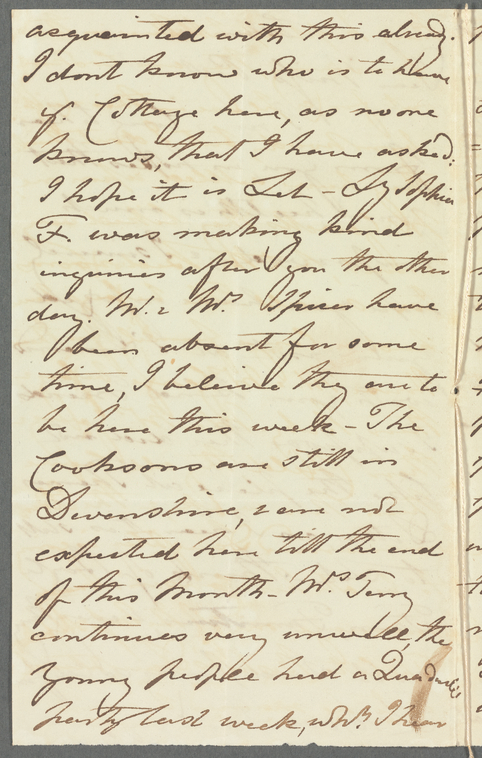 acquainted with this already.
I dont know who is to have
yr. Cottage here, as no one
knows, that I have asked:
I hope it is Let - Ly Sophia
F. was making kind
inquiries after you the other
day. Mr. & Mrs. Spicer have
been absent for some
time, I beleive they are to
be here this week - The
Cooksons are still in
Devonshire, & are not
expected here till the end
of this Month - Mrs. Terry
continues very unwell, the
young people had a Quadrille
party last week, wh.h I hear